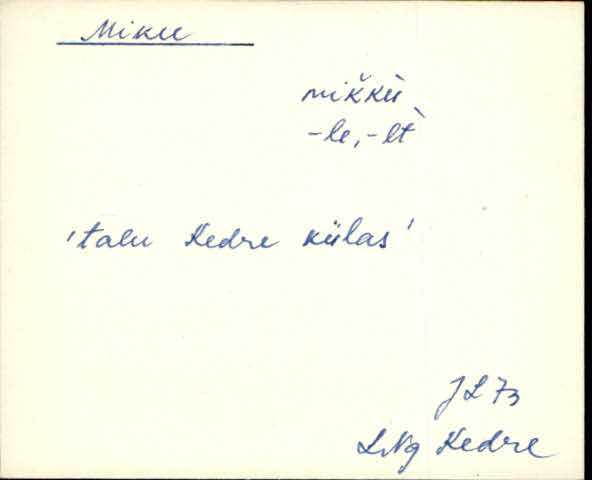 Miku
mik̆kù
-le, -lt̀
'talu Kedre külas'
JL 73
LNg Kedre